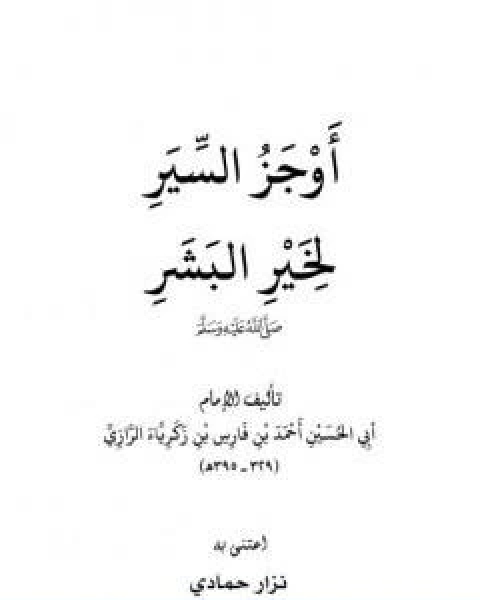 أَوْجَزُ السِّيَرِ
لِخَيْرِ البَشَرِ
صَلَّى اللَّهُ عَلَيْهِ وَسَلَّمَ
تأليف الإمام
أَبِي الحُسَيْنِ أَحْمَدَ بْنِ فَارِسِ بْنِ زَكَرِيَّاءَ الرَّازِيِّ
(٣٢٩ ـ ٣٩٥هـ)
اعتنى به
نزار حمادي